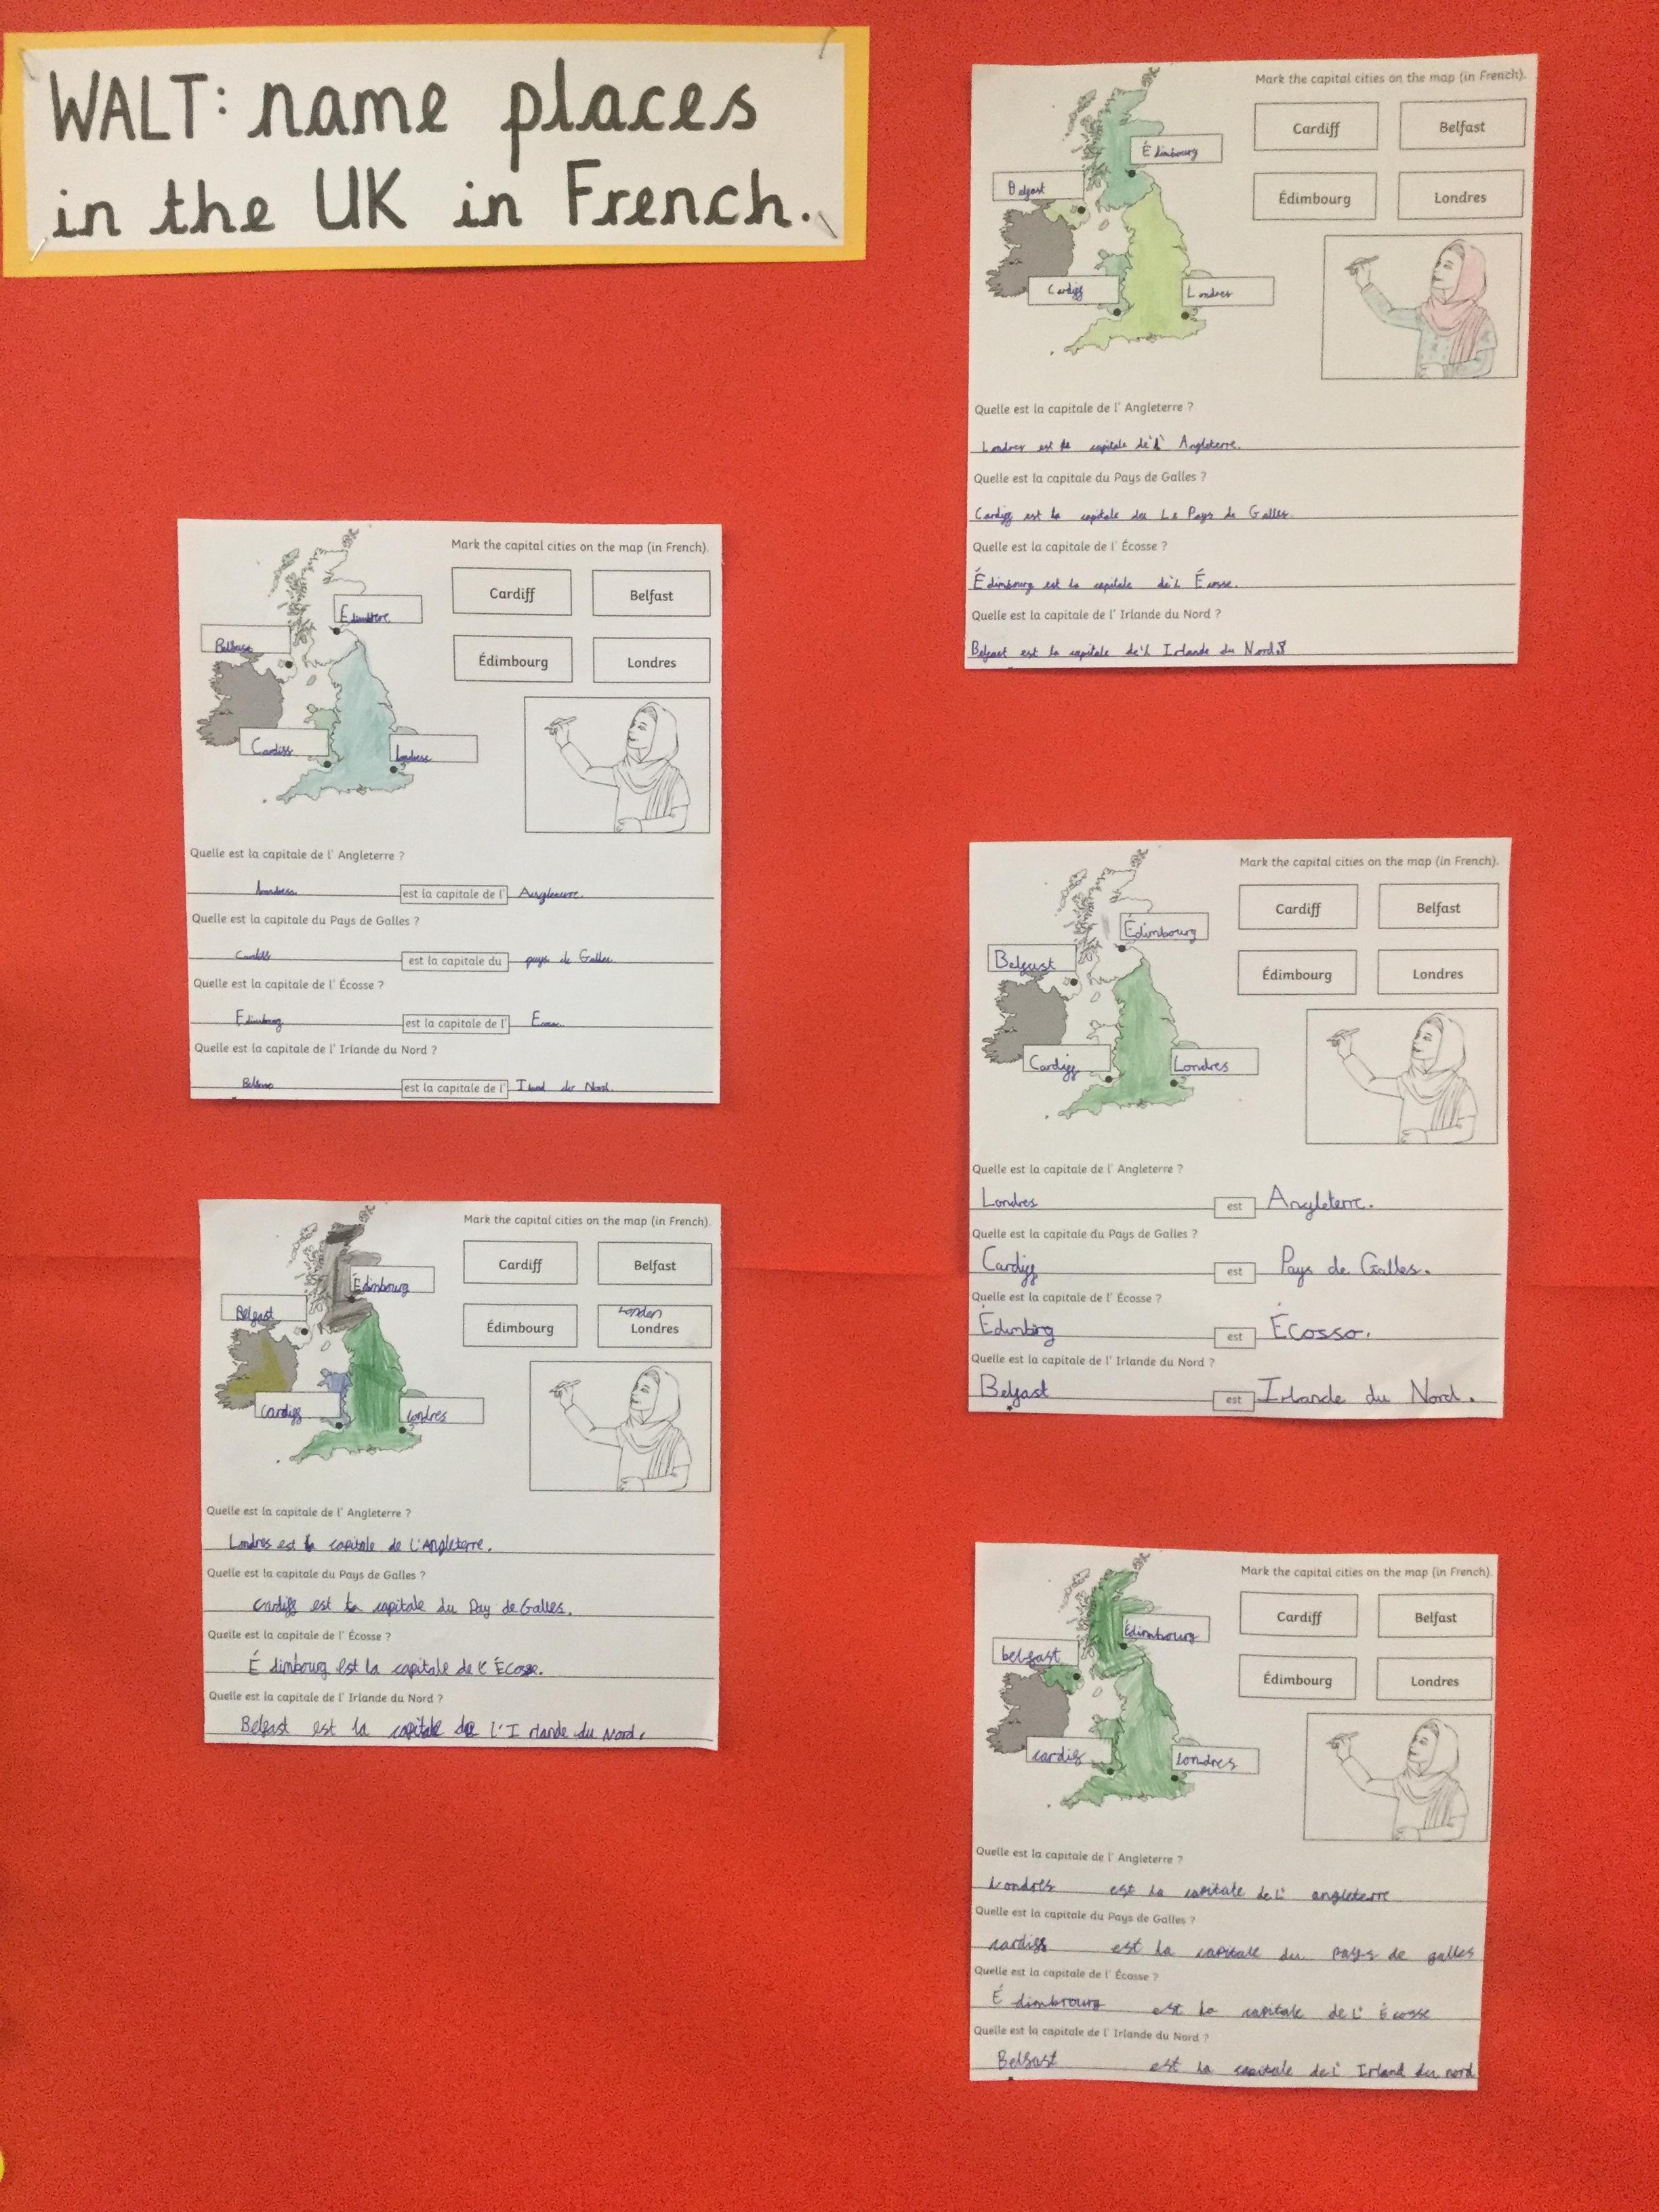 WALT: name places
in the UK in French.
Mark the capital cities on the map (in French).
Cardiff
Belfast
Édimbourg
Londres
Édimbourg
Belfast
Cardiff
Londres
Quelle est la capitale de l' Angleterre ?
Londres est la capitale de l' Angleterre.
Quelle est la capitale du Pays de Galles ?
Cardiff est la capitale du Le Pays de Galles.
Quelle est la capitale de l' Écosse ?
Édimbourg est la capitale de l Écosse.
Quelle est la capitale de l' Irlande du Nord ?
Belfast est la capitale de'l Irlande du Nord
Mark the capital cities on the map (in French).
Cardiff
Belfast
Édimbourg
Londres
Cardiss
Quelle est la capitale de l' Angleterre ?
est la capitale de l'
Quelle est la capitale du Pays de Galles ?
est la capitale du pays de
Quelle est la capitale de l' Écosse ?
Edimbourg est la capitale de l'
Quelle est la capitale de l' Irlande du Nord ?
est la capitale de l' Nord.
Mark the capital cities on the map (in French).
Cardiff
Belfast
Édimbourg
Londres
Édimbourg
Belfast
Cardiff
Londres
Quelle est la capitale de l' Angleterre ?
Londres est Angleterre.
Quelle est la capitale du Pays de Galles ?
Cardiff est Pays de Galles.
Quelle est la capitale de l' Écosse ?
Édimbirg est Écosso.
Quelle est la capitale de l' Irlande du Nord ?
Belfast est Irlande du Nord.
Mark the capital cities on the map (in French).
Cardiff
Belfast
Édimbourg
London
Londres
Édimbourg
Belfast
Cardiff
Londres
Quelle est la capitale de l' Angleterre ?
Londres est la capitale de L'Angleterre.
Quelle est la capitale du Pays de Galles ?
Cardiff est la capitale du Pay de Galles.
Quelle est la capitale de l' Écosse ?
Édimbourg est la capitale de l' Écosse.
Quelle est la capitale de l' Irlande du Nord ?
Belfast est la capitale de l'Irlande du Nord.
Mark the capital cities on the map (in French).
Cardiff
Belfast
Édimbourg
Londres
Édimbourg
belfast
cardif
Londres
Quelle est la capitale de l' Angleterre ?
Londres est la capitale de L' angleterre
Quelle est la capitale du Pays de Galles ?
cardiff est la capitale du pays de galles
Quelle est la capitale de l' Écosse ?
Édimbrourg est la capitale de L' Écosse
Quelle est la capitale de l' Irlande du Nord ?
Belfast est la capitale de l' Irland du nord